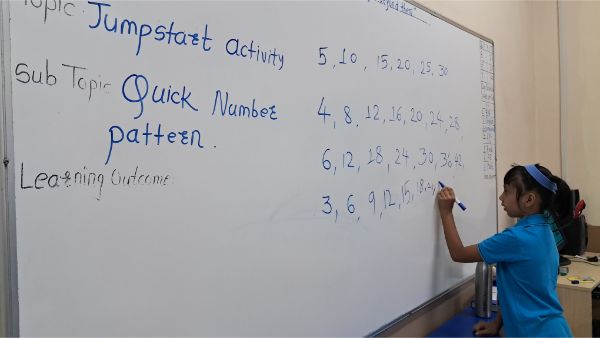 Topic: Jumpstart activity
Sub Topic Quick Number
pattern.
Learning Outcome:
5, 10, 15, 20, 25, 30
4, 8, 12, 16, 20, 24, 28,
6, 12, 18, 24, 30, 36, 42,
3, 6, 9, 12, 15, 18, 21,